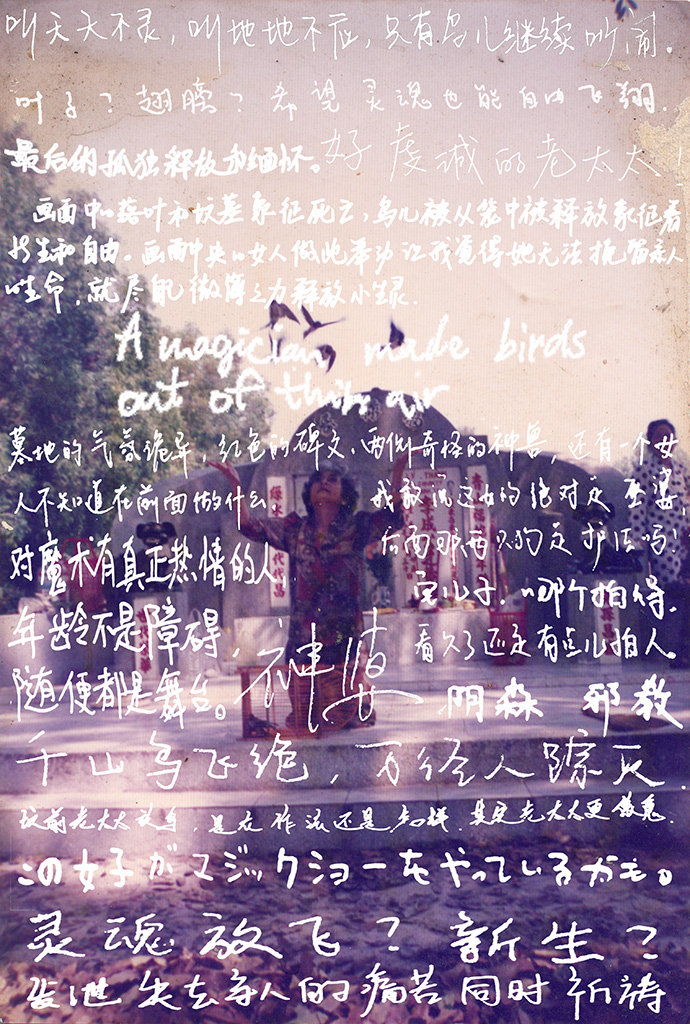 叫天天不灵，叫地地不应，只有鸟儿继续吵闹。
叶子？翅膀？希望灵魂也能自由飞翔.
最后的孤独释放和缅怀。
好虔诚的老太太！
画面中的落叶和坟墓象征死亡，鸟儿被从笼中被释放象征着
新生和自由。画面中央的女人做此举动让我觉得她无法挽留亲人
的生命，就尽自己微薄之力释放小生灵.
A magician made birds
out of thin air
墓地的气氛诡异，红色的碑文，两侧奇怪的神兽，还有一个女
人不知道在前面做什么
我敢说这女的绝对是巫婆，
后面那两只狗是护法吗！
对魔术有真正热情的人，
年龄不是障碍，
随便都是舞台。
龟儿子. 哪个拍得.
看久了还是有点儿拍人。
神婆
阴森 邪教
千山鸟飞绝，万径人踪灭.
坟前老太太放鸟，是在作法还是怎样. 其实老太太更像鬼.
この女子がマジックショーをやっているかも。
灵魂放飞？新生？
发泄失去亲人的痛苦同时祈祷